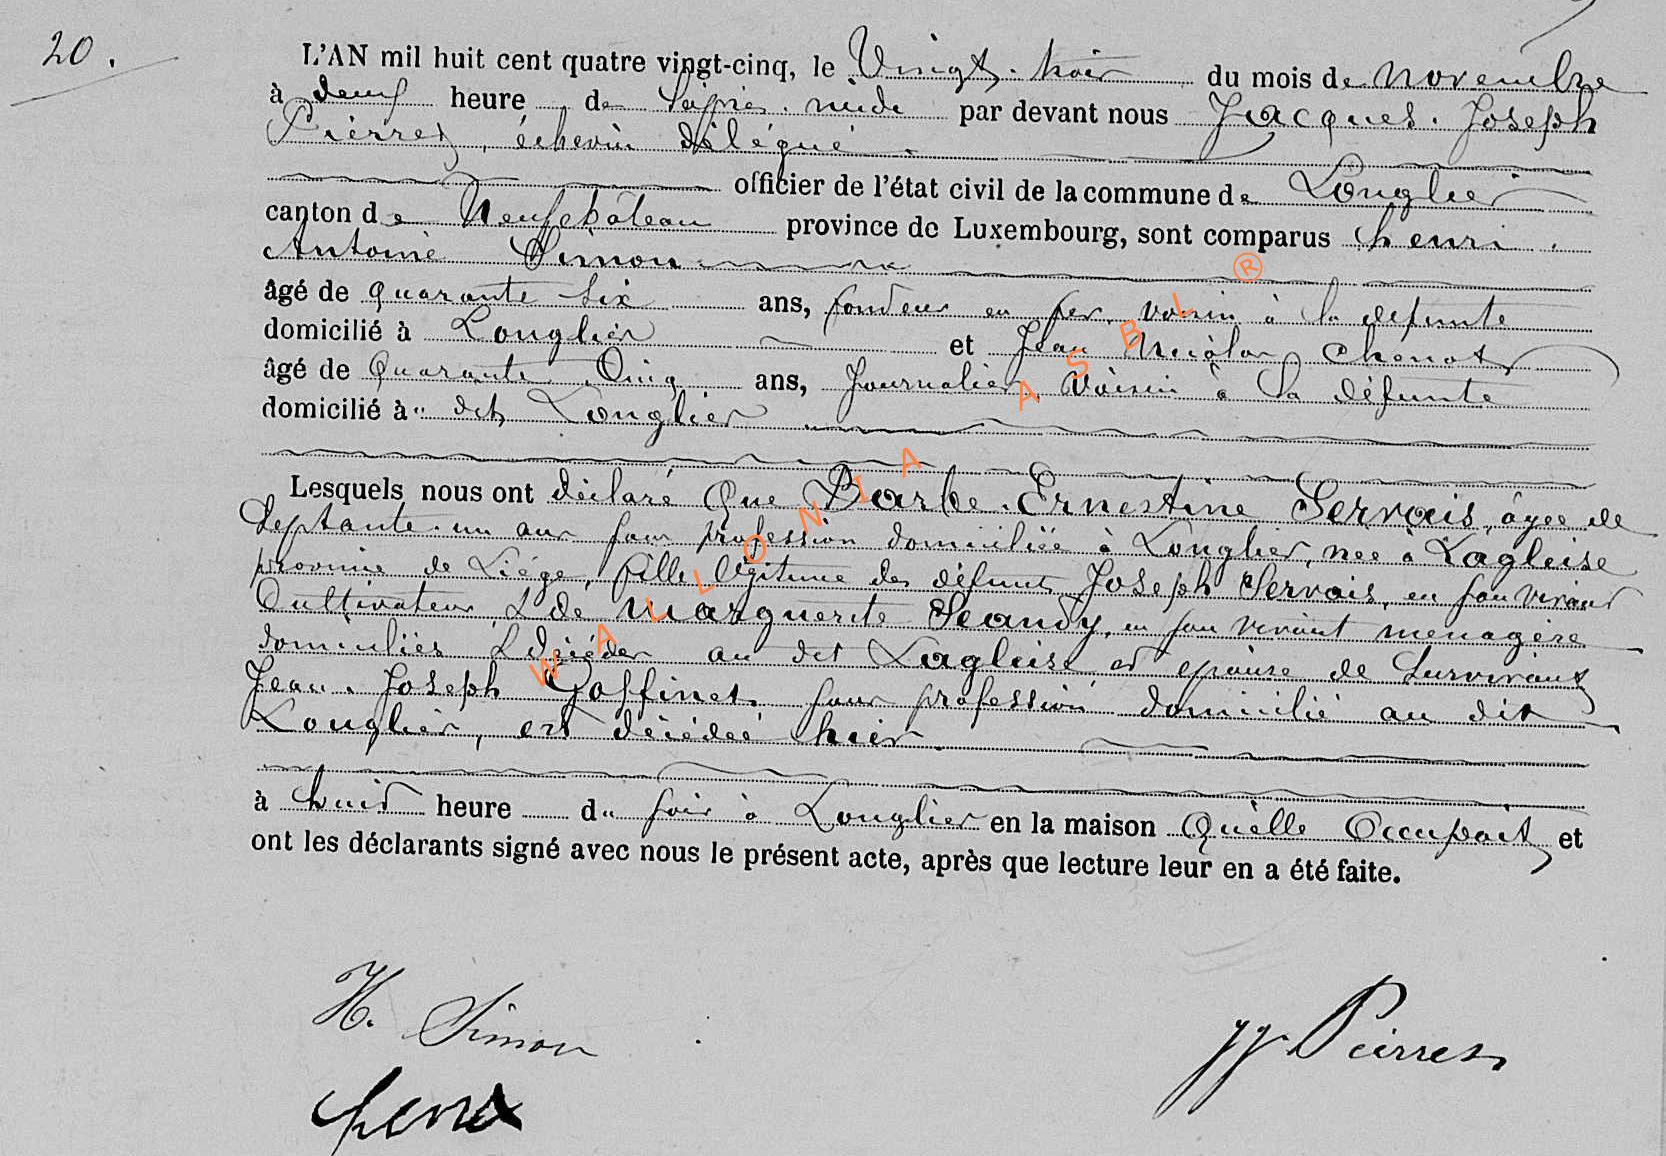 20.
L'AN mil huit cent quatre vingt-cinq, le Vingt-trois du mois de novembre
à deux heure de l'après-midi par devant nous Jacques-Joseph
Pierret, échevin délégué
officier de l'état civil de la commune de Longlier
canton de Neufchâteau province de Luxembourg, sont comparus henri
Antoine Simon
âgé de quarante six ans, fondeur en fer, voisin à la défunte
domicilié à Longlier et Jean Nicolas Chenot
âgé de Quarante Cinq ans, Journalier, Voisin à la défunte
domicilié à dit Longlier
Lesquels nous ont déclaré Que Barbe-Ernestine Servais, âgée de
Septante-un ans sans profession domiciliée à Longlier, née à Lagleise
province de Liége, fille légitime des défunts Joseph Servais, en son vivant
Cultivateur, & de Marguerite Seandy, en son vivant ménagère
domiciliés & décédés au dit Lagleise et épouse de Survivant
Jean-Joseph Goffinet sans profession domicilié au dit
Longlier, est décédée hier
à huit heure du soir à Longlier en la maison Qu'elle Occupait et
ont les déclarants signé avec nous le présent acte, après que lecture leur en a été faite.
H. Simon
JJ. Pierret
WALLONIA ASBL ®